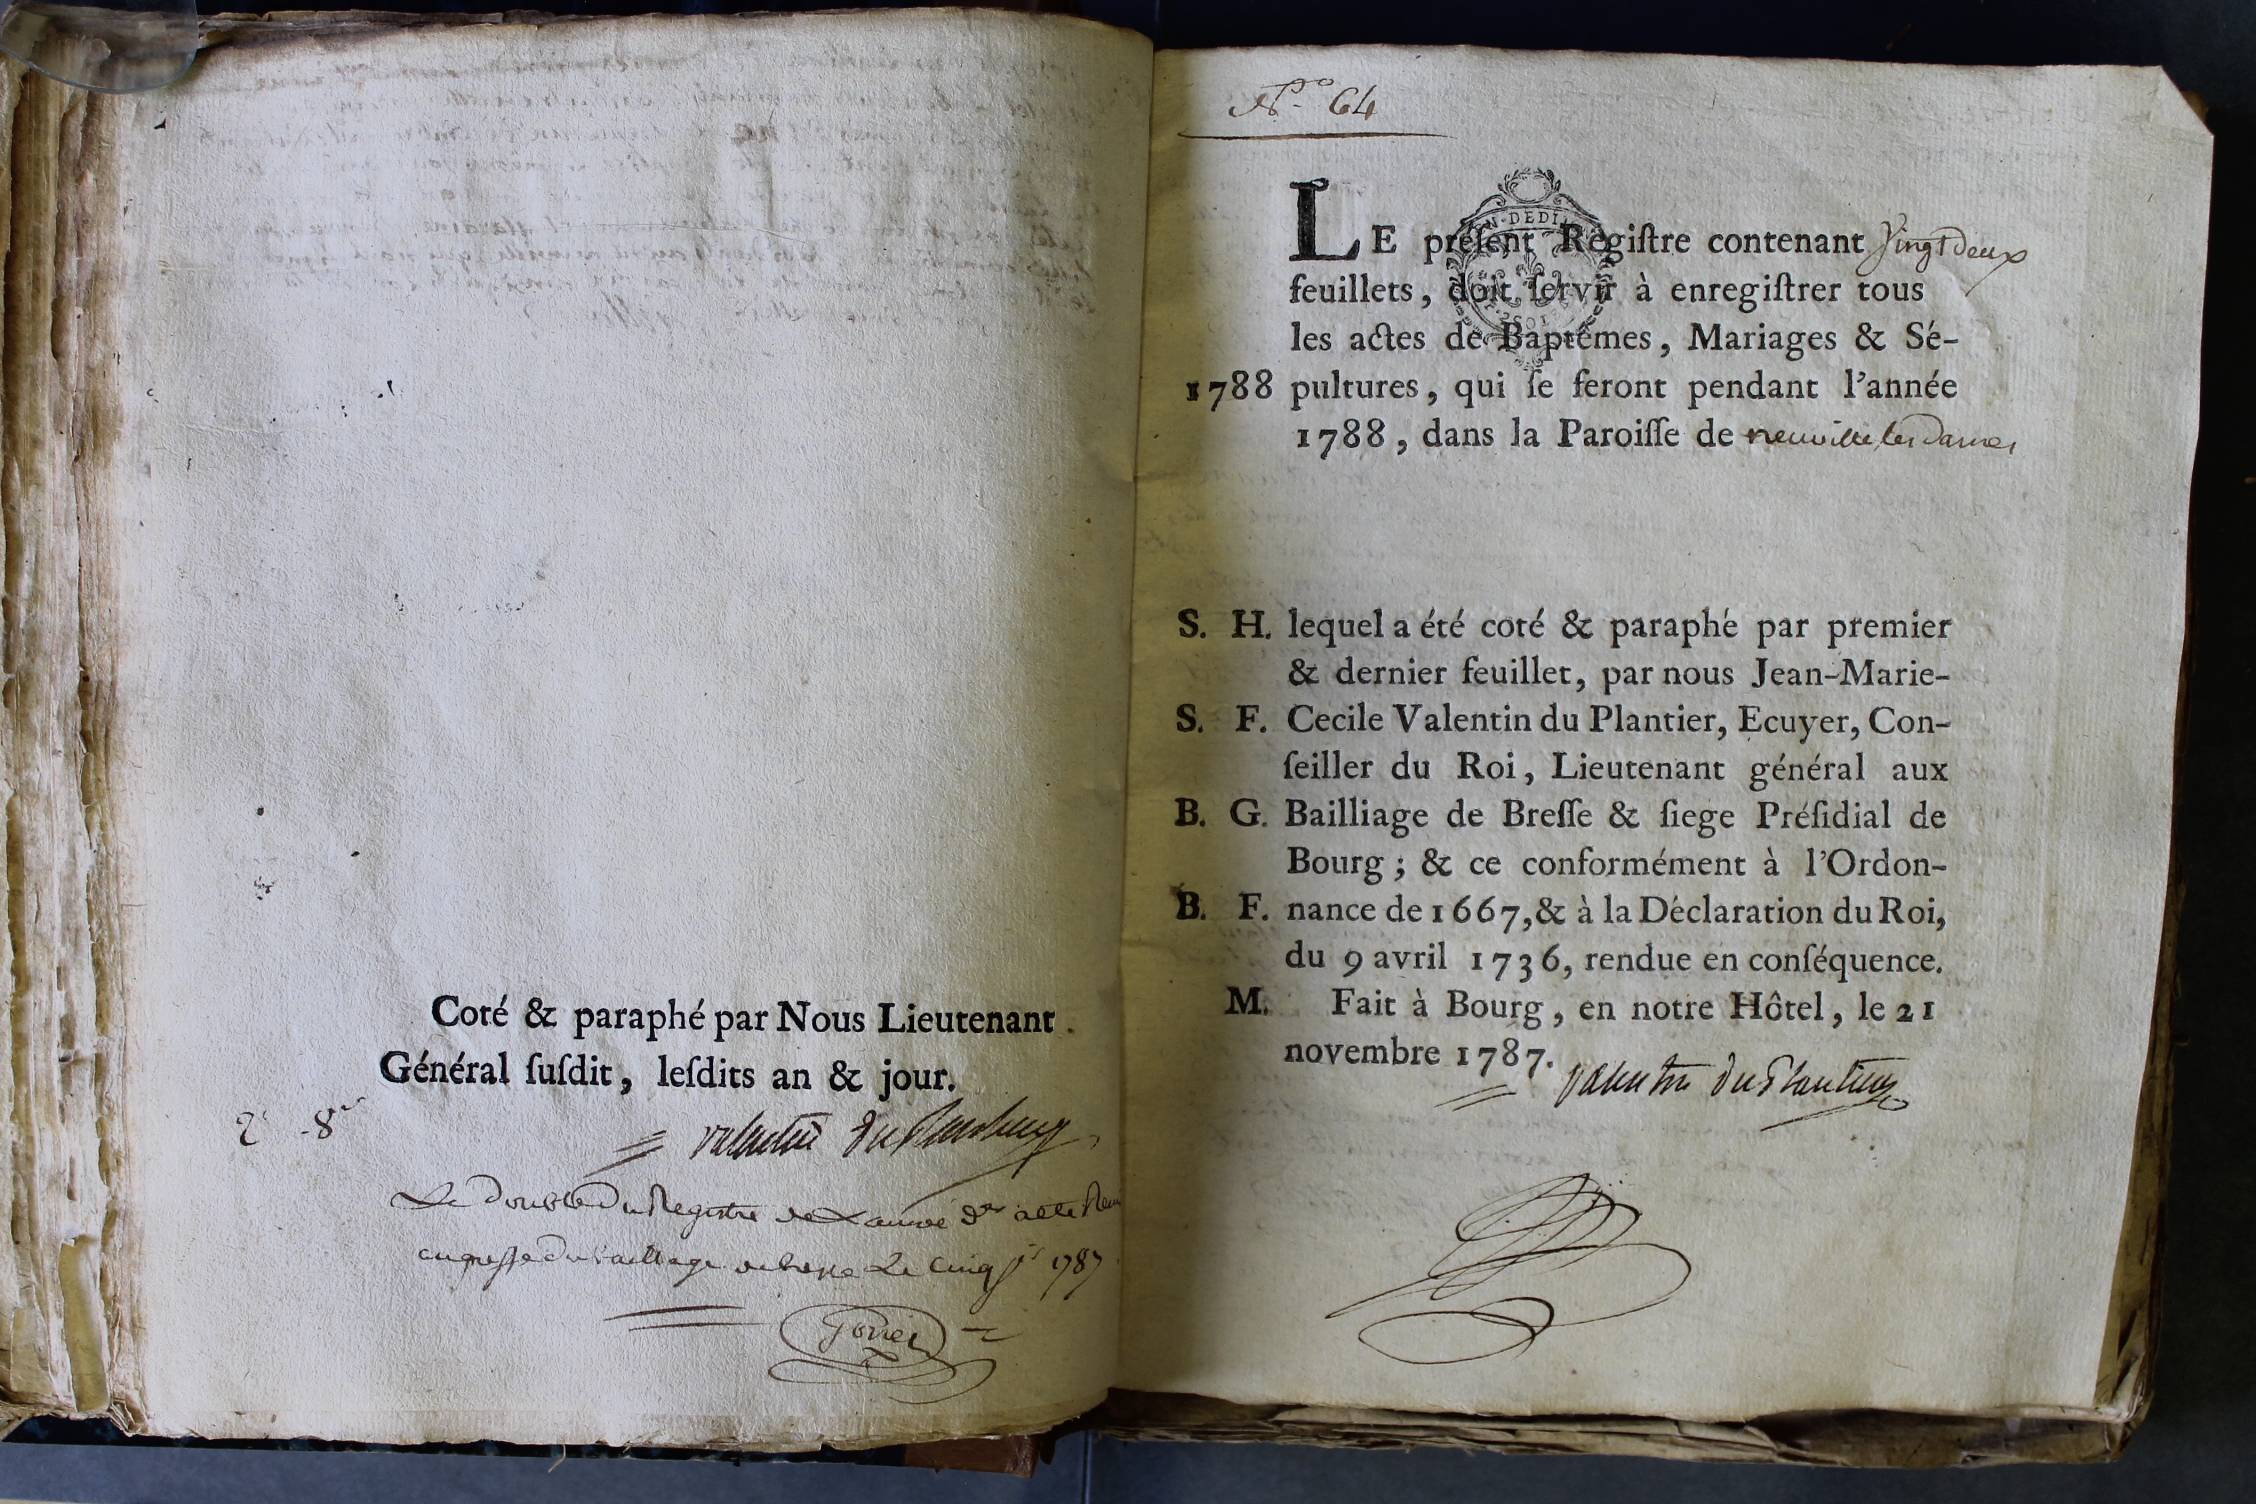 Coté & paraphé par Nous Lieutenant
Général ſuſdit, leſdits an & jour.
valentin du Plantier
Le double du Registre de L'année
au greffe du bailliage de bresse Le cinq 1787
N.o 64
LE préſent Regiſtre contenant vingt deux
feuillets, doit ſervir à enregiſtrer tous
les actes de Baptêmes, Mariages & Sé-
1788 pultures, qui ſe feront pendant l'année
1788, dans la Paroiſſe de neuville les Dames
S. H. lequel a été coté & paraphé par premier
& dernier feuillet, par nous Jean-Marie-
S. F. Cecile Valentin du Plantier, Ecuyer, Con-
ſeiller du Roi, Lieutenant général aux
B. G. Bailliage de Breſſe & ſiege Préſidial de
Bourg ; & ce conformément à l'Ordon-
B. F. nance de 1667, & à la Déclaration du Roi,
du 9 avril 1736, rendue en conſéquence.
M. Fait à Bourg, en notre Hôtel, le 21
novembre 1787.
valentin du Plantier